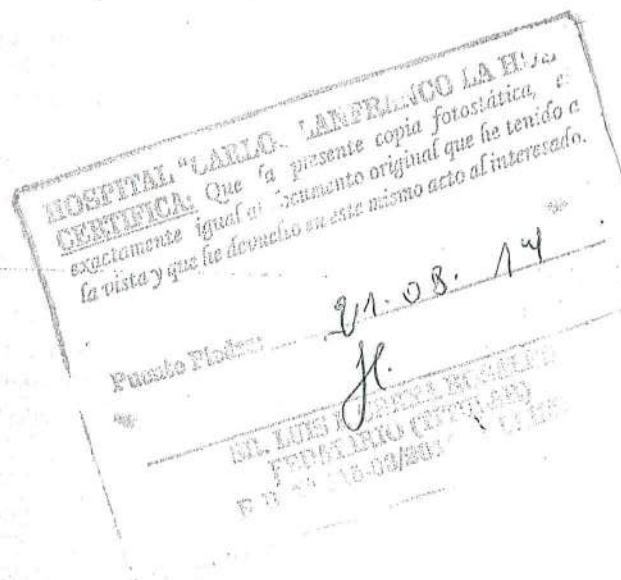 HOSPITAL "CARLOS LANFRANCO LA H
CERTIFICA: Que la presente copia fotostática, es
exactamente igual al documento original que he tenido a
la vista y que he devuelto en este mismo acto al interesado.
Puente Piedra 21.08.14
SR. LUIS
FEDATARIO (TITULAR)